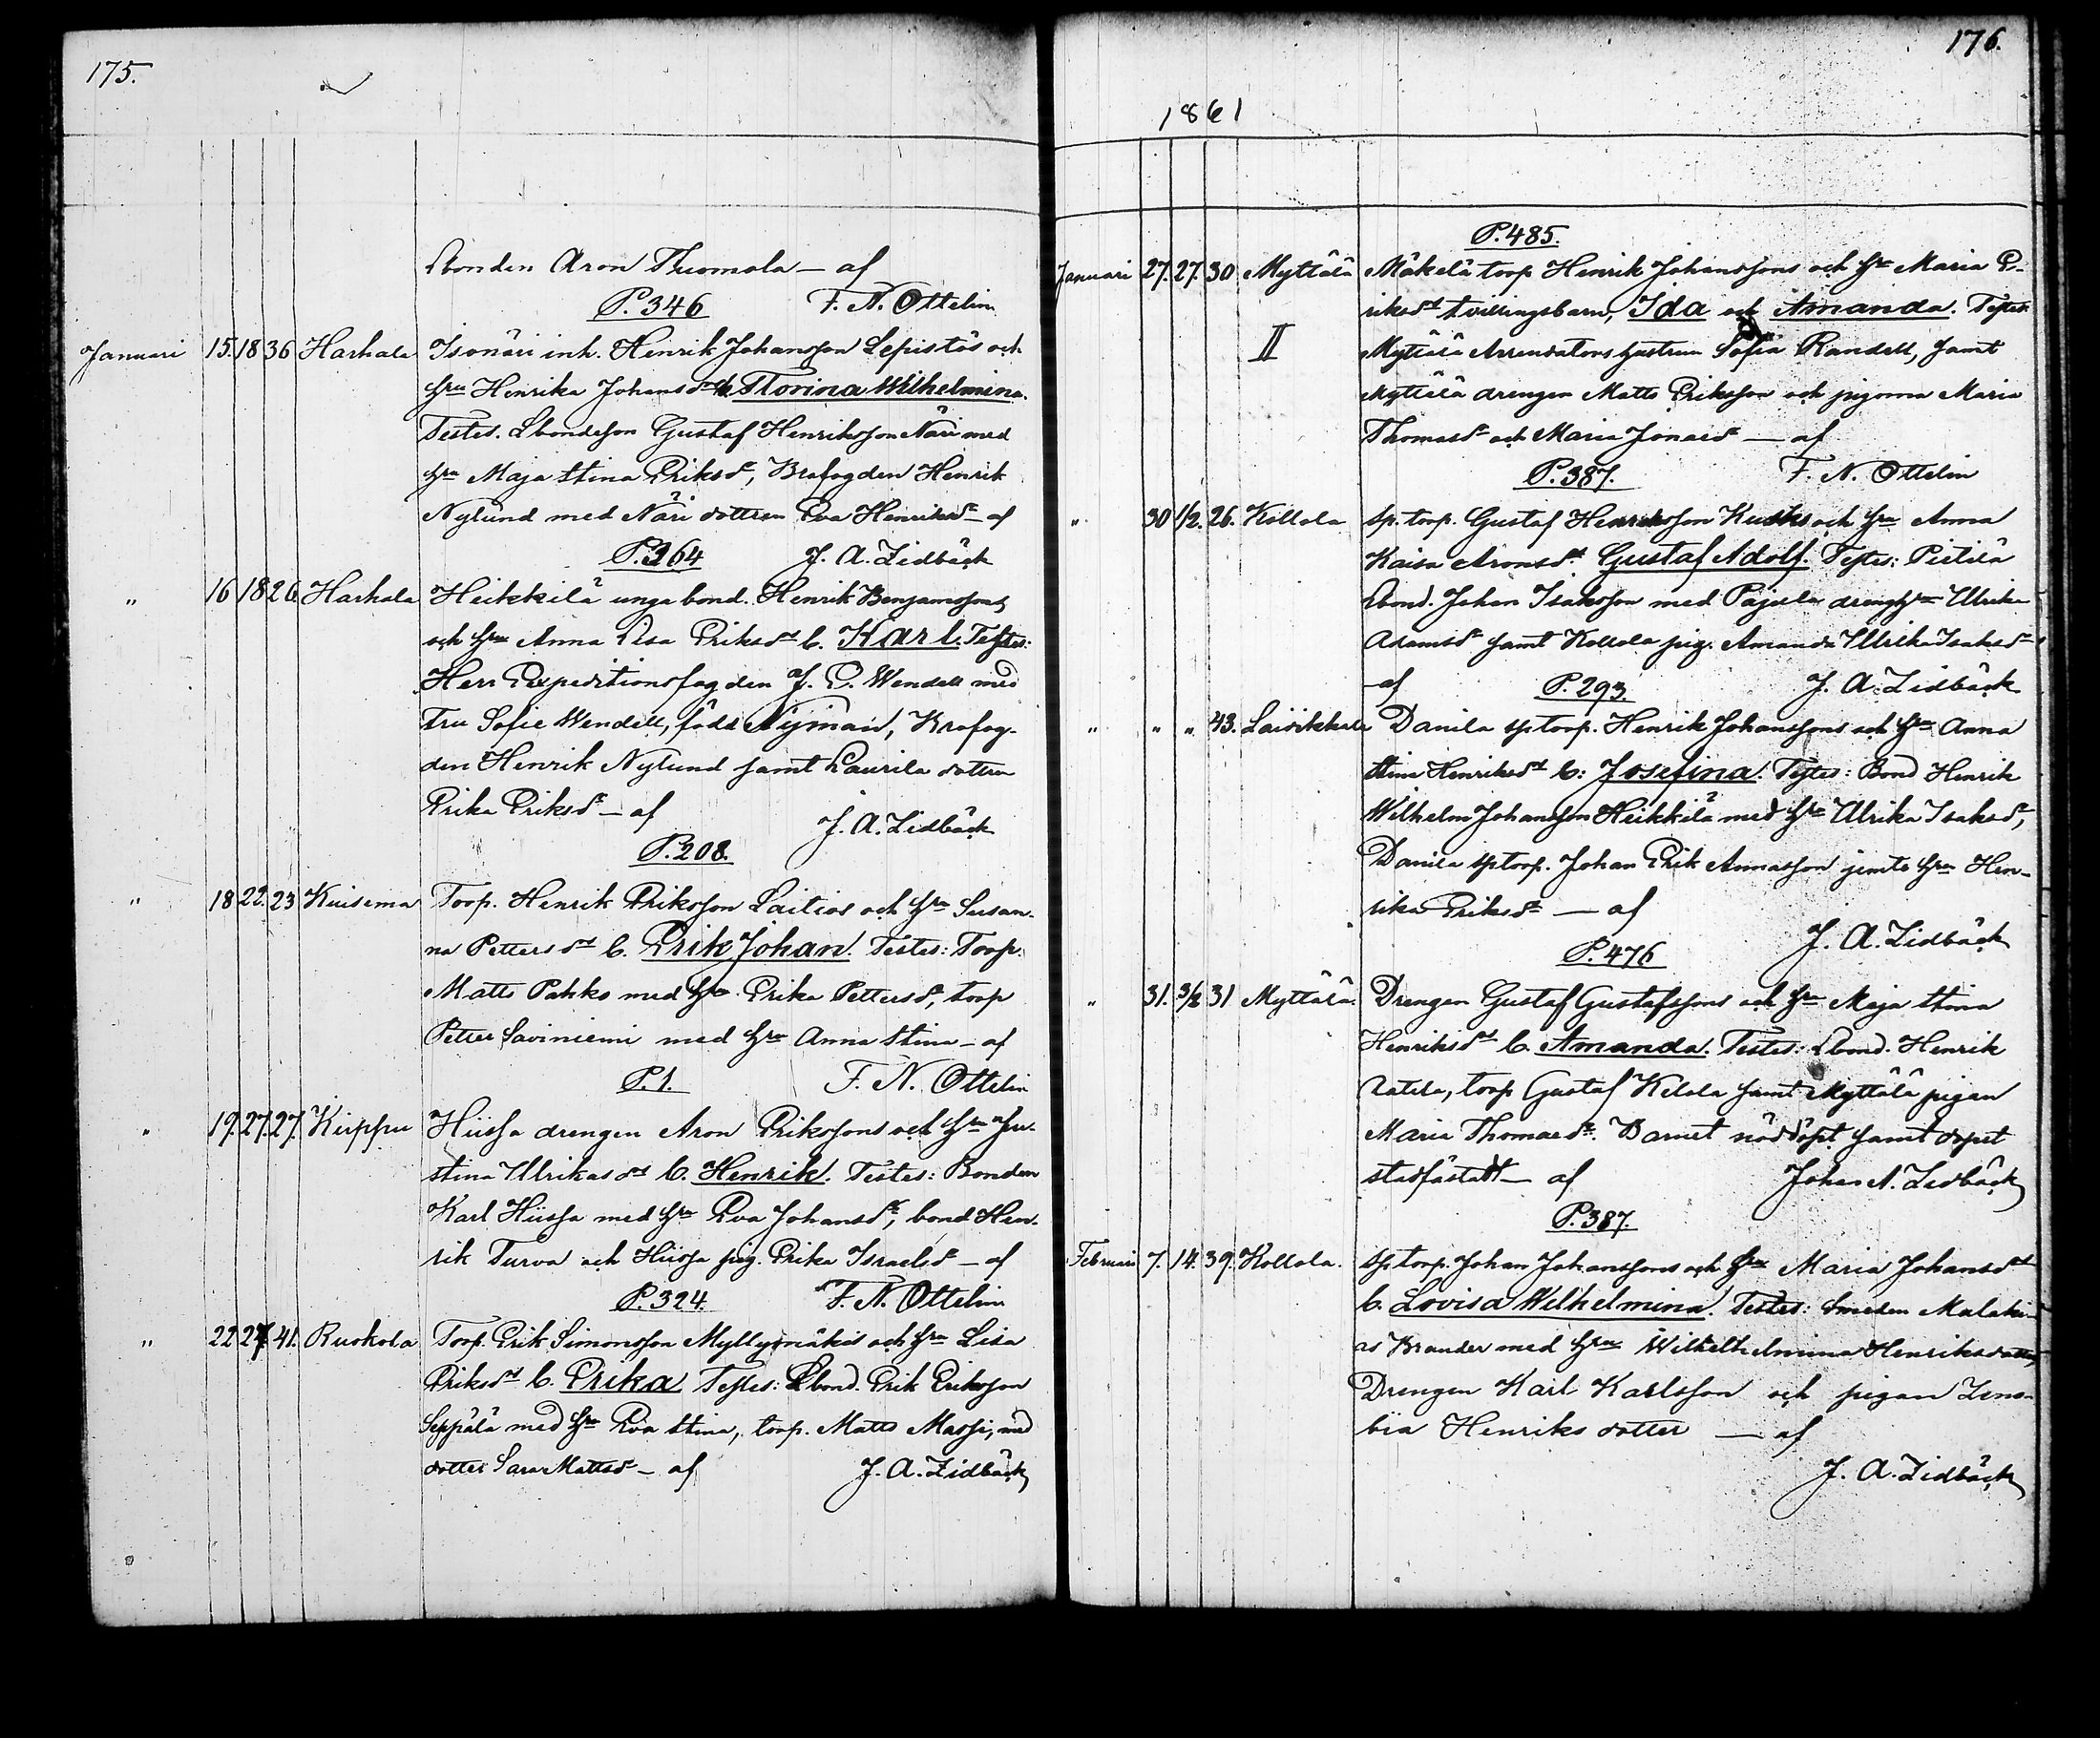 175.
Lbonden Aron Thuomola — af
P. 346 F. N. Ottelin
Januari 15. 18 36 Harhala Isonäri inh. Henrik Johansson Lepistös och
hru Henrika Johansd b. Florina Wilhelmina.
Testes. Lbondeson Gustaf Henriksson Näri med
hru Maja Stina Eriksdr, Brofogden Henrik
Nylund med Näri dottren Eva Henriksdr — af
P. 364 J. A. Lidbäck
" 16 18 26. Harhala Heikkilä unga bond. Henrik Benjamssons
och hru Anna Lisa Eriksdr b. Karl. Testes:
Herr Expeditionsfogden J. E. Wendell med
Fru Sofie Wendell, född Nyman, Krofog-
den Henrik Nylund samt Laurila dottren
Erika Eriksdr — af J. A. Lidbäck
P. 208.
" 18 22. 23 Kuisema Torp. Henrik Eriksson Laitios och hru Susan-
na Pettersdr b. Erik Johan. Testes: Torp.
Matts Pahks med hru Erika Pettersdr, torp
Petter Saviniemi med hru Anna Stina — af
P. 1. F. N. Ottelin
" 19. 27. 27. Kuppu Hiissa drengen Aron Erikssons och hru Ju-
stina Ulrikasdr b. Henrik. Testes: Bonden
Karl Hiissa med hru Eva Johansdr, bond Hen-
rik Turva och Hiissa pig. Erika Israelsdr — af
P. 324. F. N. Ottelin
" 22 27. 41. Ruokola Torp. Erik Simonsson Myllymäkis och hru Lisa
Eriksdr b. Erika Testes: Lbond. Erik Eriksson
Seppälä med hru Eva Stina, torp. Matts Massi, med
dotter Sara Mattsdr — af J. A. Lidbäck
176.
1861
P. 485.
Januari 27. 27. 30 Myttälä Mäkelä torp Henrik Johanssons och hru Maria E-
riksdr tvillingsbarn, Ida och Amanda. Testes:
II Myttälä Arrendatorshustrun Sofia Randell, samt
Myttälä drengen Matts Eriksson och pigorna Maria
Thomasdr och Maria Jonasdr — af
P. 387. F. N. Ottelin
" 30 1/2. 26. Kollola sp. torp. Gustaf Henriksson och hru Anna
Kaisa Aronsdr Gustaf Adolf. Testes: Pietilä
Lbond. Johan Isaksson med Pajula drenghru Ulrika
Adamsdr samt Kollola pig. Amanda Ulrika Isaksdr
— af P. 293 J. A. Lidbäck
" " " 43. Laivikkala Danila sptorp. Henrik Johanssons och hru Anna
Stina Henriksdr b: Josefina. Testes: Bond Henrik
Wilhelm Johansson Heikkilä med hru Ulrika Isaksdr,
Danila sptorp. Johan Erik Annasson jemte hru Hen-
rika Eriksdr — af
P. 476 J. A. Lidbäck
" 31. 3/2 31 Myttälä. Drengen Gustaf Gustafssons och hru Maja Stina
Henriksdr b. Amanda. Testes: Lbond. Henrik
torp Gustaf Kelola samt Myttälä pigan
Maria Thomasdr. Barnet nöddöpt samt dopet
stadfästadt — af Johan A. Lidbäck
P. 387.
Februari 7. 14. 39. Kollola. Sptorp. Johan Johanssons och hru Maria Johansdr
b. Lovisa Wilhelmina. Testes: Smeden Malaki-
as Brander med hru Wilhelhelmina Henriksdotter
Drengen Karl Karlsson och pigan Zeno-
bia Henriksdotter — af
J. A. Lidbäck